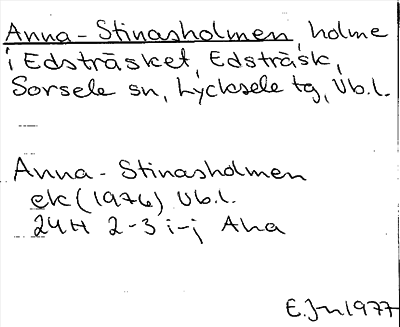 Anna-Stinasholmen, holme
i Edsträsket, Edsträsk,
Sorsele sn, Lycksele tg, Vb.l.
Anna-Stinasholmen
ek (1976) Vb.l.
24H 2-3 i-j Aha
E.Jn 1977